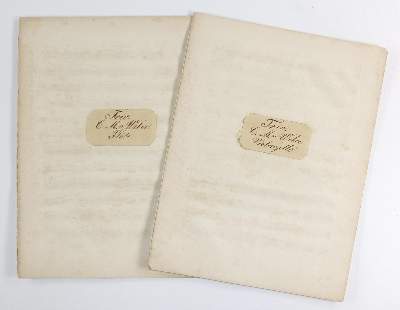 Trio
C. M. v. Weber
Flöte
Trio
C. M. v. Weber
Violoncello